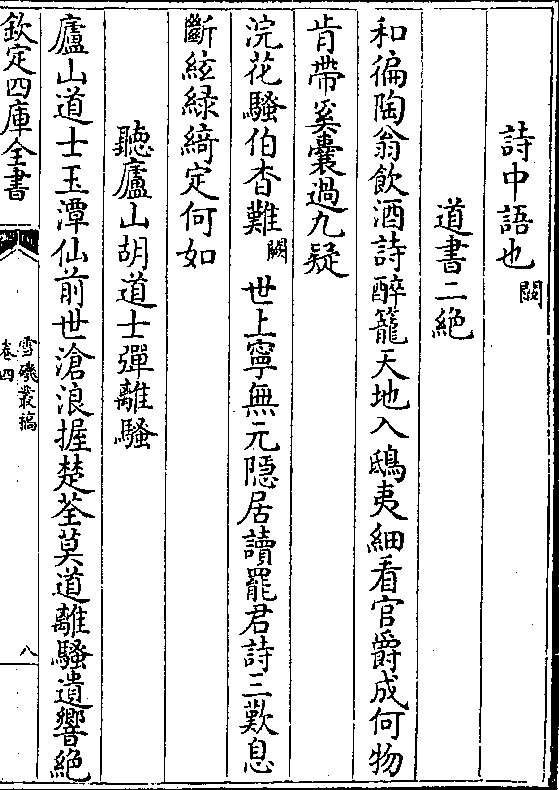 詩中語也闕
道書二絶
和徧陶翁飲酒詩醉籠天地入鴟夷細看官爵成何物
肯帶奚囊過九疑
浣花騷伯杳難闕世上寧無元隠居讀罷君詩三歎息
斷絃緑綺定何如
聽廬山胡道士彈離騷
廬山道士玉潭仙前世滄浪握楚荃莫道離騷遺響絶
欽定四庫全書
雪磯叢稿
卷四
八